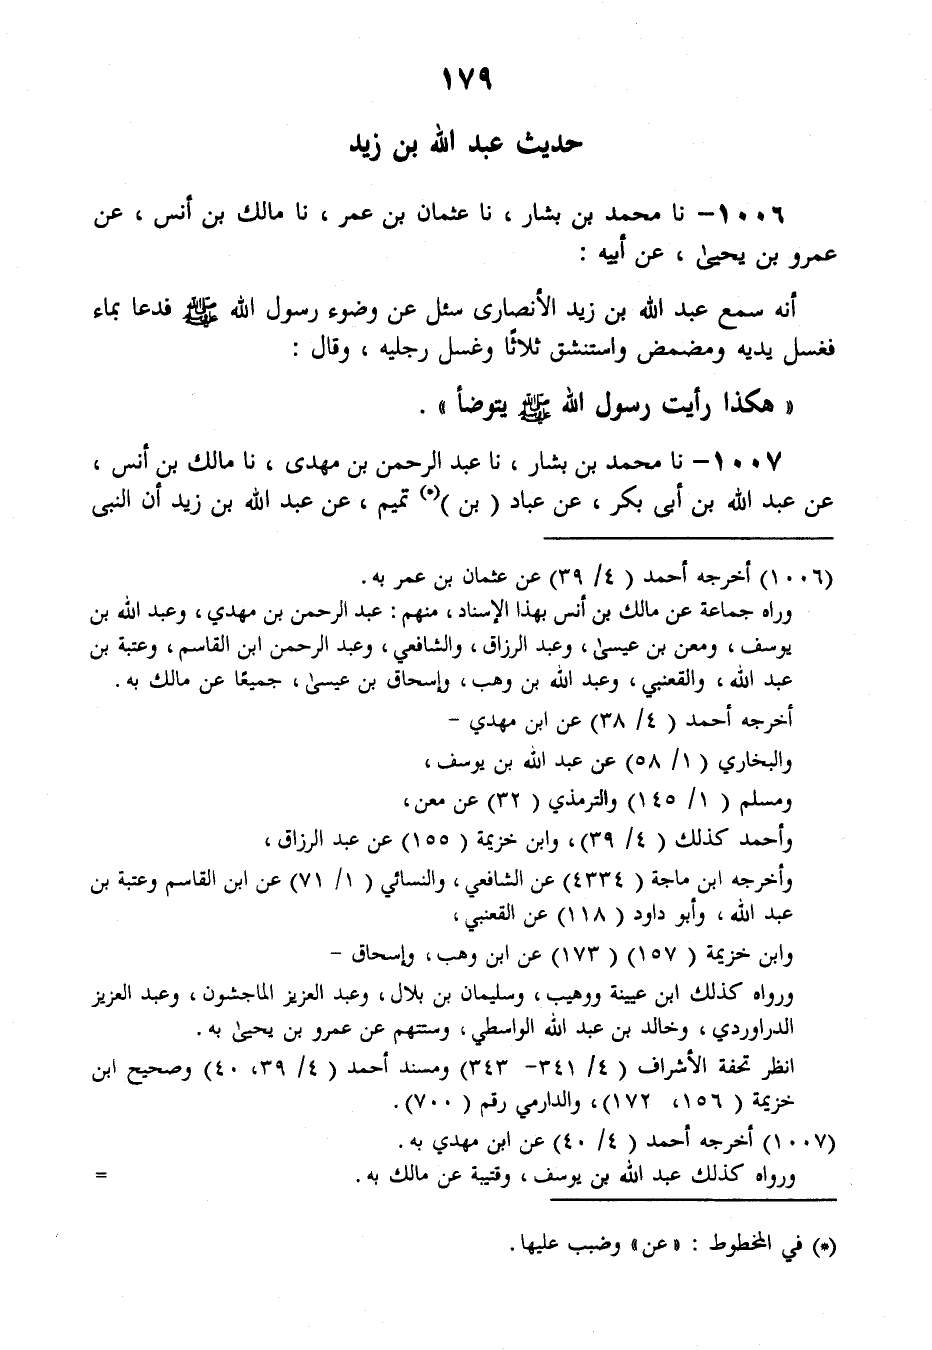 ١٧٩
حديث عبد الله بن زيد
١٠٠٦- نا محمد بن بشار ، نا عثمان بن عمر ، نا مالك بن أنس ، عن
عمرو بن يحيىٰ ، عن أبيه :
أنه سمع عبد الله بن زيد الأنصارى سئل عن وضوء رسول الله ﷺ فدعا بماء
فغسل يديه ومضمض واستنشق ثلاثًا وغسل رجليه ، وقال :
« هكذا رأيت رسول الله ﷺ يتوضأ » .
١٠٠٧- نا محمد بن بشار ، نا عبد الرحمن بن مهدى ، نا مالك بن أنس ،
عن عبد الله بن أبى بكر ، عن عباد ( بن )(*) تميم ، عن عبد الله بن زيد أن النبى
(١٠٠٦) أخرجه أحمد ( ٤/ ٣٩) عن عثمان بن عمر به.
وراه جماعة عن مالك بن أنس بهذا الإسناد ، منهم : عبد الرحمن بن مهدي ، وعبد الله بن
يوسف ، ومعن بن عيسىٰ ، وعبد الرزاق ، والشافعي ، وعبد الرحمن ابن القاسم ، وعتبة بن
عبد الله ، والقعنبي ، وعبد الله بن وهب ، وإسحاق بن عيسىٰ ، جميعًا عن مالك به .
أخرجه أحمد ( ٤/ ٣٨) عن ابن مهدي -
والبخاري ( ١/ ٥٨) عن عبد الله بن يوسف ،
ومسلم ( ١/ ١٤٥) والترمذي ( ٣٢) عن معن ،
وأحمد كذلك ( ٤/ ٣٩)، وابن خزيمة ( ١٥٥) عن عبد الرزاق ،
وأخرجه ابن ماجة ( ٤٣٣٤) عن الشافعي ، والنسائي ( ١/ ٧١) عن ابن القاسم وعتبة بن
عبد الله ، وأبو داود ( ١١٨) عن القعنبي ،
وابن خزيمة ( ١٥٧) ( ١٧٣) عن ابن وهب ، وإسحاق -
ورواه كذلك ابن عيينة ووهيب ، وسليمان بن بلال ، وعبد العزيز الماجشون ، وعبد العزيز
الدراوردي ، وخالد بن عبد الله الواسطي ، وستتهم عن عمرو بن يحيىٰ به .
انظر تحفة الأشراف ( ٤/ ٣٤١- ٣٤٣) ومسند أحمد ( ٤/ ٣٩، ٤٠) وصحيح ابن
خزيمة ( ١٥٦، ١٧٢)، والدارمي رقم ( ٧٠٠).
(١٠٠٧) أخرجه أحمد ( ٤/ ٤٠) عن ابن مهدي به .
ورواه كذلك عبد الله بن يوسف ، وقتيبة عن مالك به . =
(*) في المخطوط : «عن» وضبب عليها .